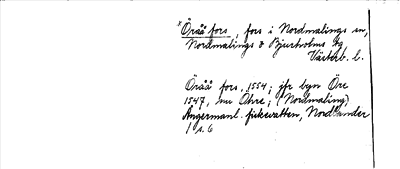 x Öråå fors, fors i Nordmalings sn,
Nordmalings & Bjurholms tg
Västerb. l.
Öråå fors, 1554; jfr byn Öre
1547, nu Öhre; (Nordmaling)
Ångermanl. fiskevatten, Nordlander
1 s. 6